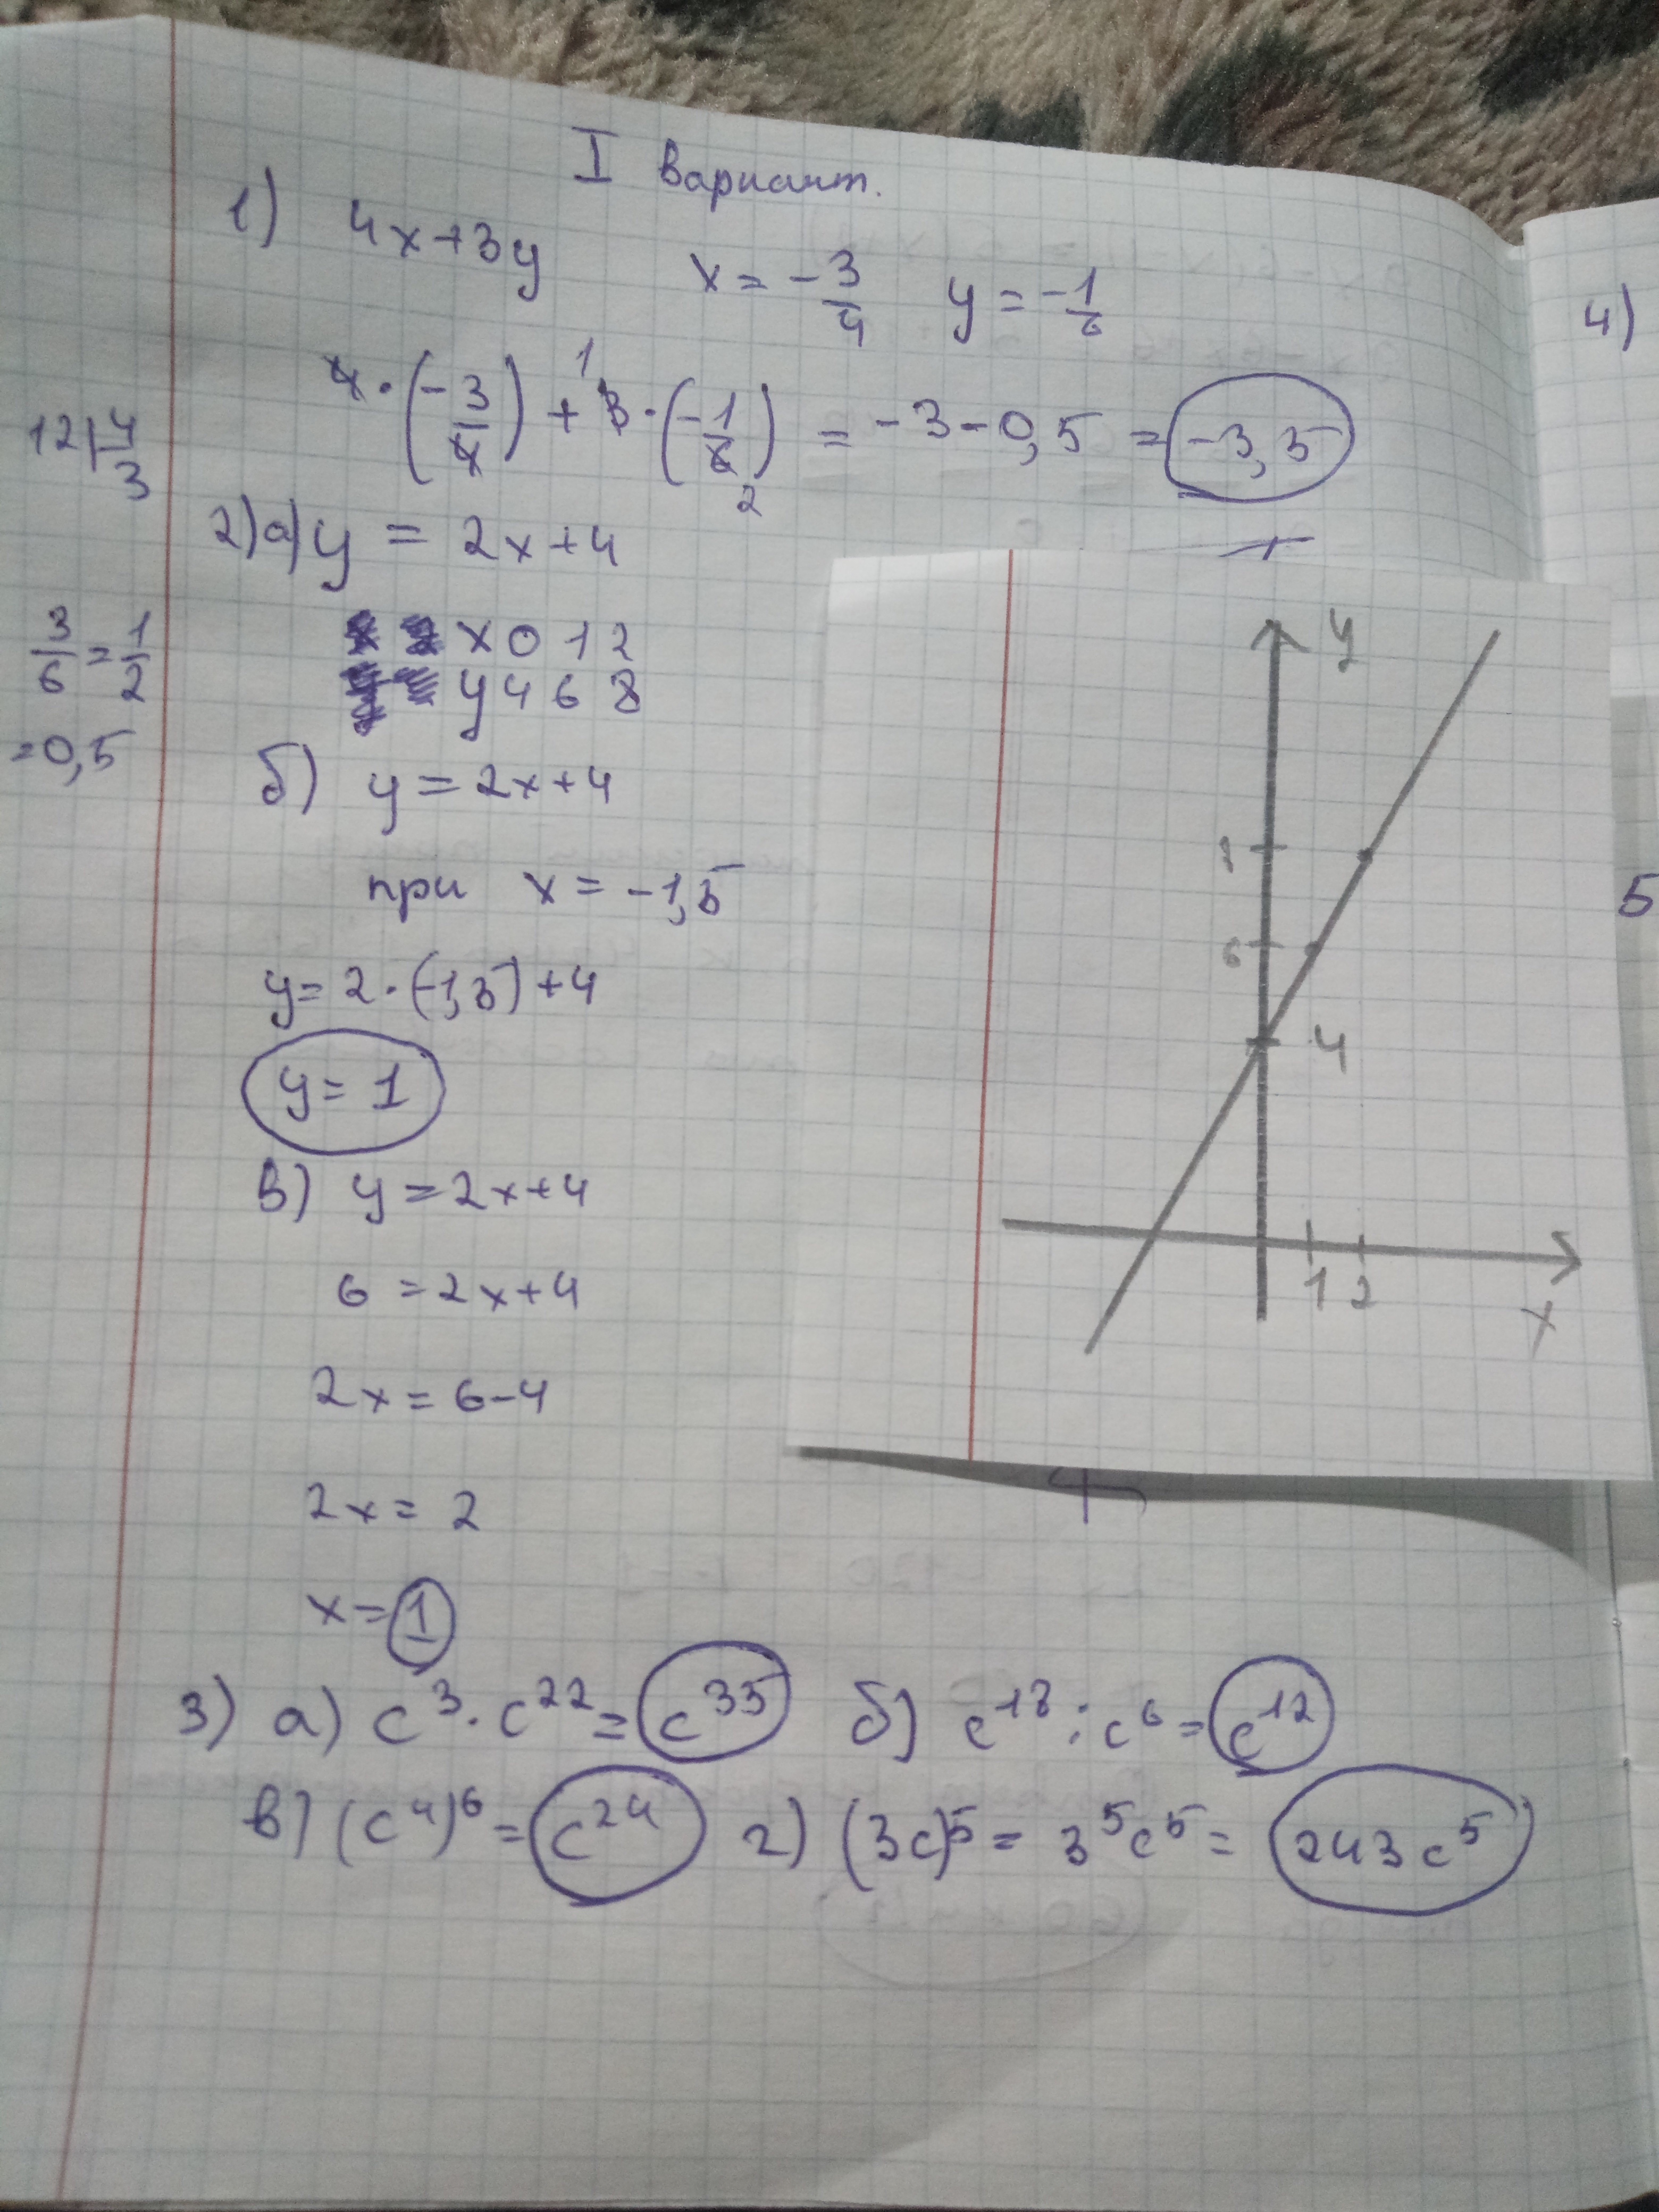 I вариант.
1) 4x+3y x = -3/4 y = -1/6
4·(-3/4) + 3·(-1/6) = -3-0,5 = -3,5
1
2
12 4
3
2) а) y = 2x+4
x 0 1 2
y 4 6 8
3/6 = 1/2
=0,5
б) y = 2x+4
при x = -1,5
y = 2·(-1,5)+4
y = 1
в) y = 2x+4
6 = 2x+4
2x = 6-4
2x = 2
x = 1
3) а) c³·c²² = c³⁵ б) c¹⁸ : c⁶ = c¹²
в) (c⁴)⁶ = c²⁴ г) (3c)⁵ = 3⁵c⁵ = 243c⁵
y
6
4
1 2
x
4)
5